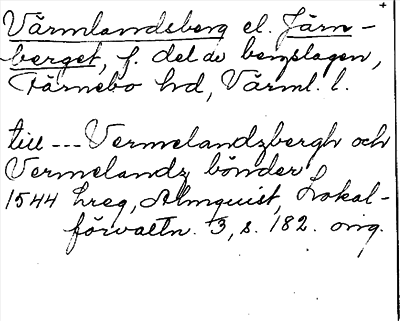 Värmlandsberg el. Järn-
berget, f. del av bergslagen,
Färnebo hd, Värml. l.
till --- Vermelandzbergh och
Vermelandz bönder
1544 hreg, Almquist, Lokal-
förvaltn. 3, s. 182. orig.